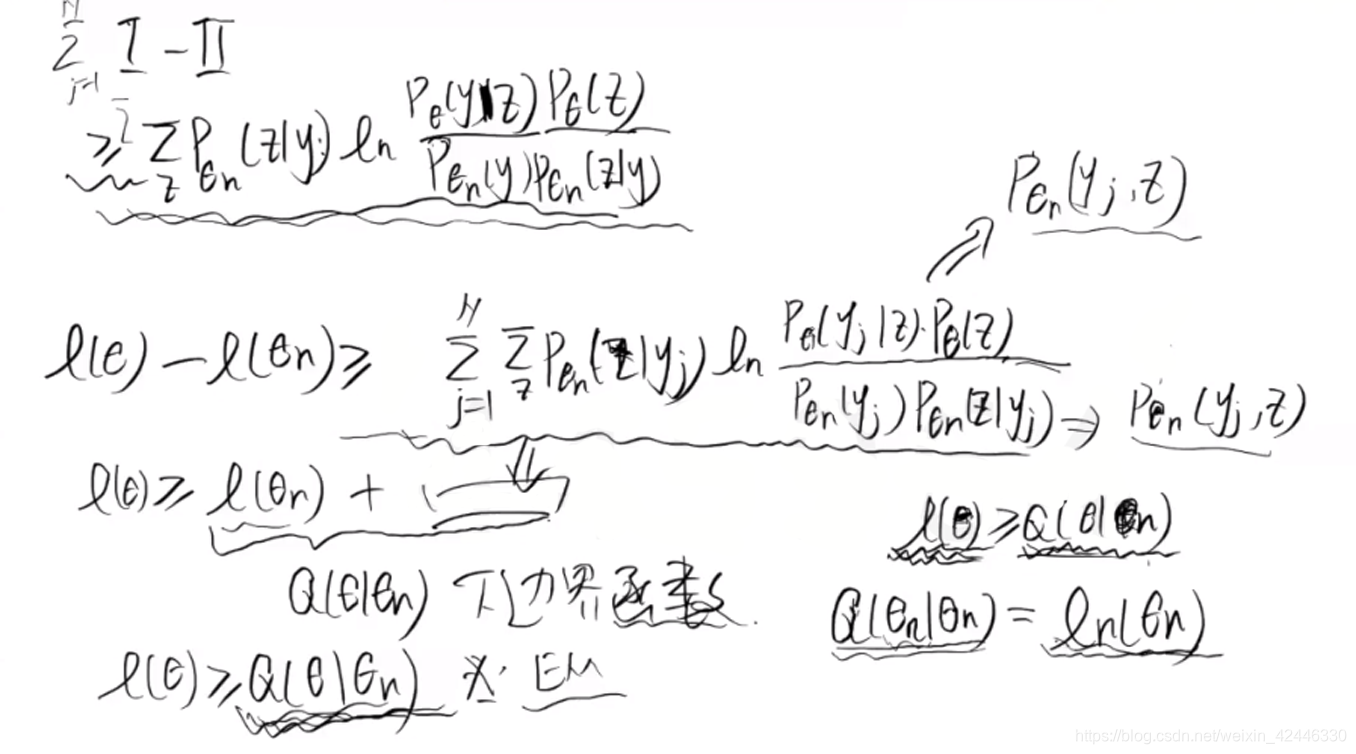 \sum_{j=1}^{N} I - II
\geq \sum_{z} P_{\theta_n}(z|y_j) \ln \frac{P_\theta(y|z) P_\theta(z)}{P_{\theta_n}(y) P_{\theta_n}(z|y)}
P_{\theta_n}(y_j, z)
l(\theta) - l(\theta_n) \geq \sum_{j=1}^{N} \sum_{z} P_{\theta_n}(z|y_j) \ln \frac{P_\theta(y_j|z) \cdot P_\theta(z)}{P_{\theta_n}(y_j) P_{\theta_n}(z|y_j)} \Rightarrow P_{\theta_n}(y_j, z)
l(\theta) \geq l(\theta_n) +
l(\theta) \geq Q(\theta|\theta_n)
Q(\theta|\theta_n) 下边界函数
Q(\theta_n|\theta_n) = ln(\theta_n)
l(\theta) \geq Q(\theta|\theta_n) EM
https://blog.csdn.net/weixin_42446330